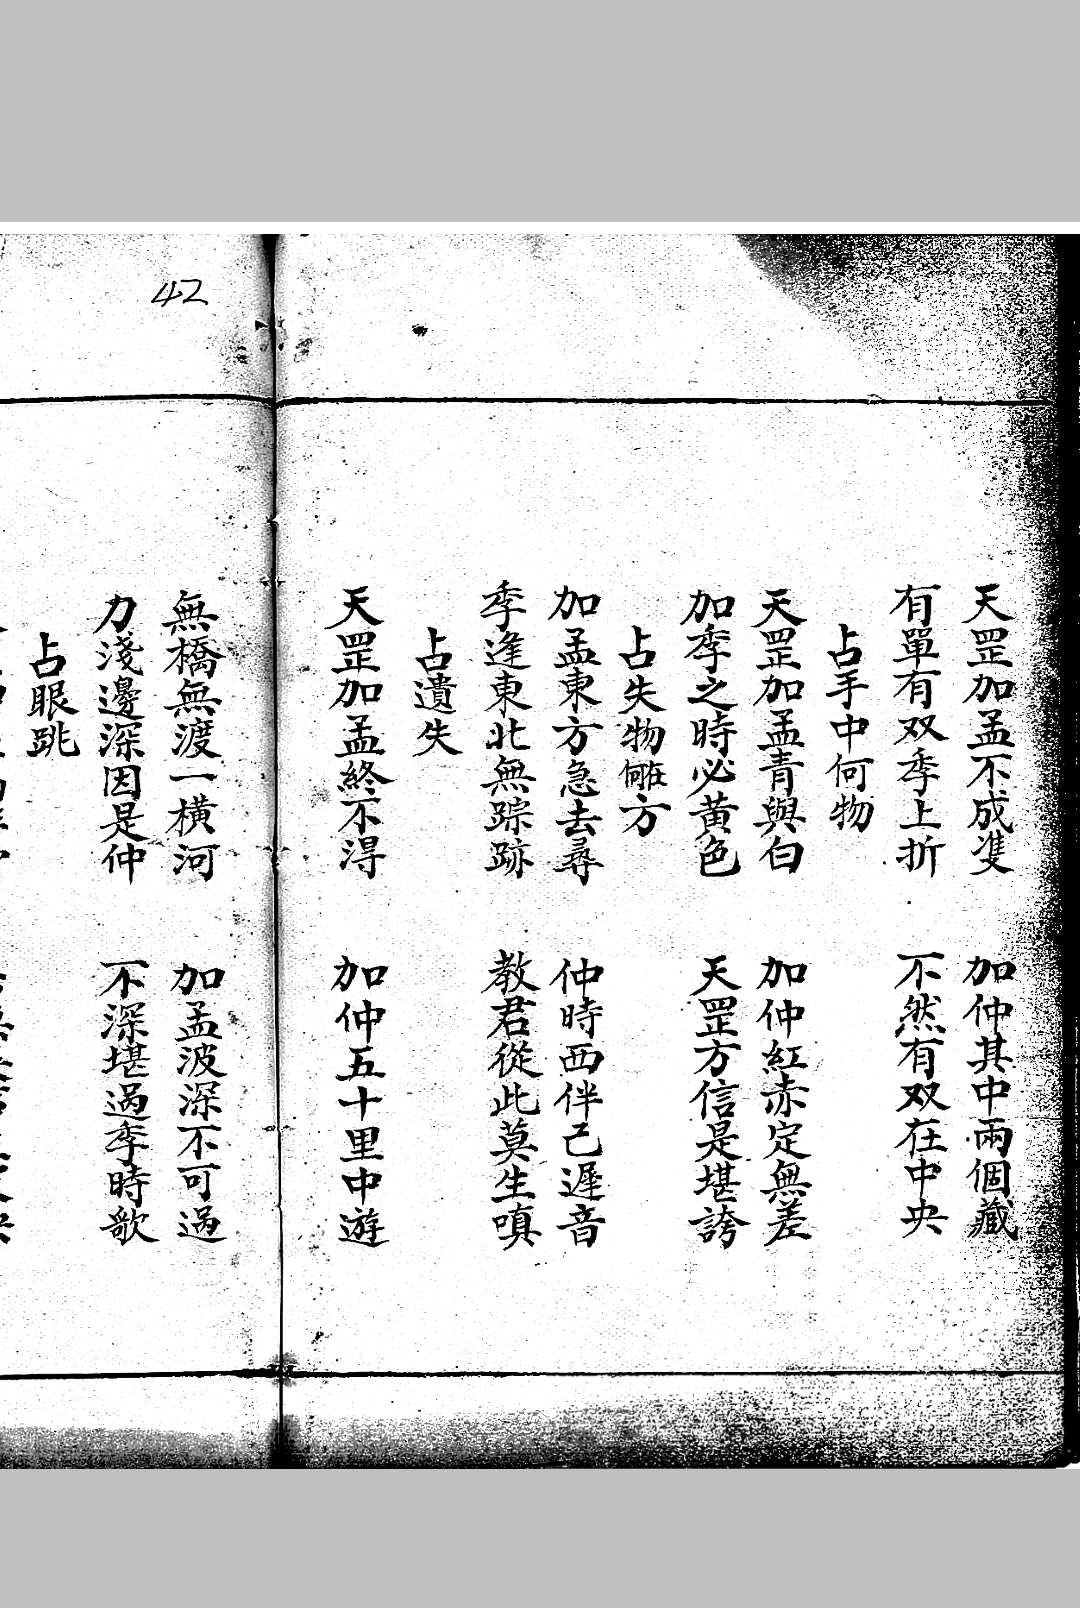 天罡加孟不成㕠 加仲其中兩個藏
有單有双季上折 不然有双在中央
占手中何物
天罡加孟青與白 加仲紅赤定無差
加季之時必黃色 天罡方信是堪誇
占失物何在方
加孟東方急去尋 仲時西伴己遲音
季逢東北無踪跡 教君從此莫生嗔
占遺失
天罡加孟終不淂 加仲五十里中遊
42
無橋無渡一橫河 加孟波深不可過
力淺邊深因是仲 不深堪過季時歌
占眼跳